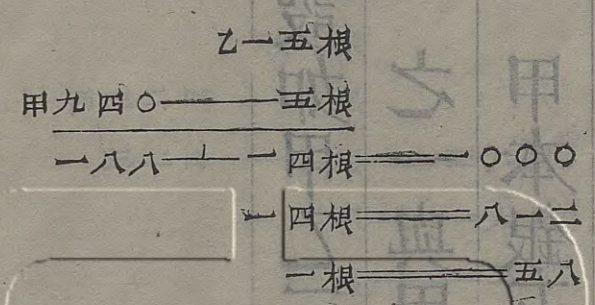 乙一五根
甲九四〇—五根
一八八⊥一四根＝一〇〇〇
一四根＝八一二
一根＝五八